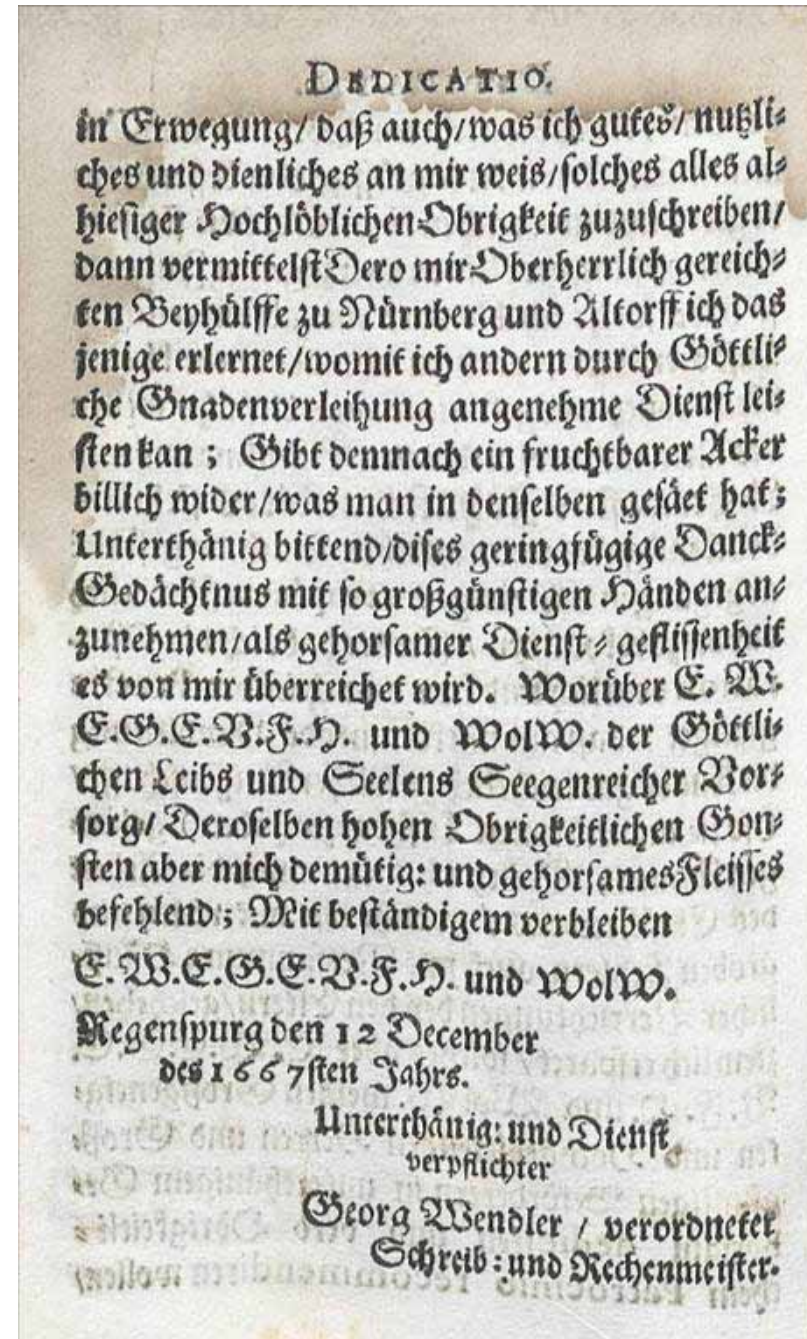 DEDICATIO.
in Erwegung/ daß auch/ was ich gutes/ nutzli-
ches und dienliches an mir weis/ solches alles al-
hiesiger Hochlöblichen Obrigkeit zuzuschreiben/
dann vermittelst Dero mir Oberherrlich gereich-
ten Beyhülffe zu Nürnberg und Altorff ich das
jenige erlernet/ womit ich andern durch Göttli-
che Gnadenverleihung angenehme Dienst lei-
sten kan ; Gibt demnach ein fruchtbarer Acker
billich wider/ was man in denselben gesäet hat;
Unterthänig bittend/ dises geringfügige Danck-
Gedächtnus mit so großgünstigen Händen an-
zunehmen/ als gehorsamer Dienst-geflissenheit
es von mir überreichet wird. Worüber E. W.
E.G.E.V.F.H. und WolW. der Göttli-
chen Leibs und Seelens Seegenreicher Vor-
sorg/ Deroselben hohen Obrigkeitlichen Gon-
sten aber mich demütig: und gehorsames Fleisses
befehlend; Mit beständigem verbleiben
E.W.E.G.E.V.F.H. und WolW.
Regenspurg den 12 December
des 1667sten Jahrs.
Unterthänig: und Dienst
verpflichter
Georg Wendler / verordneter
Schreib: und Rechenmeister.